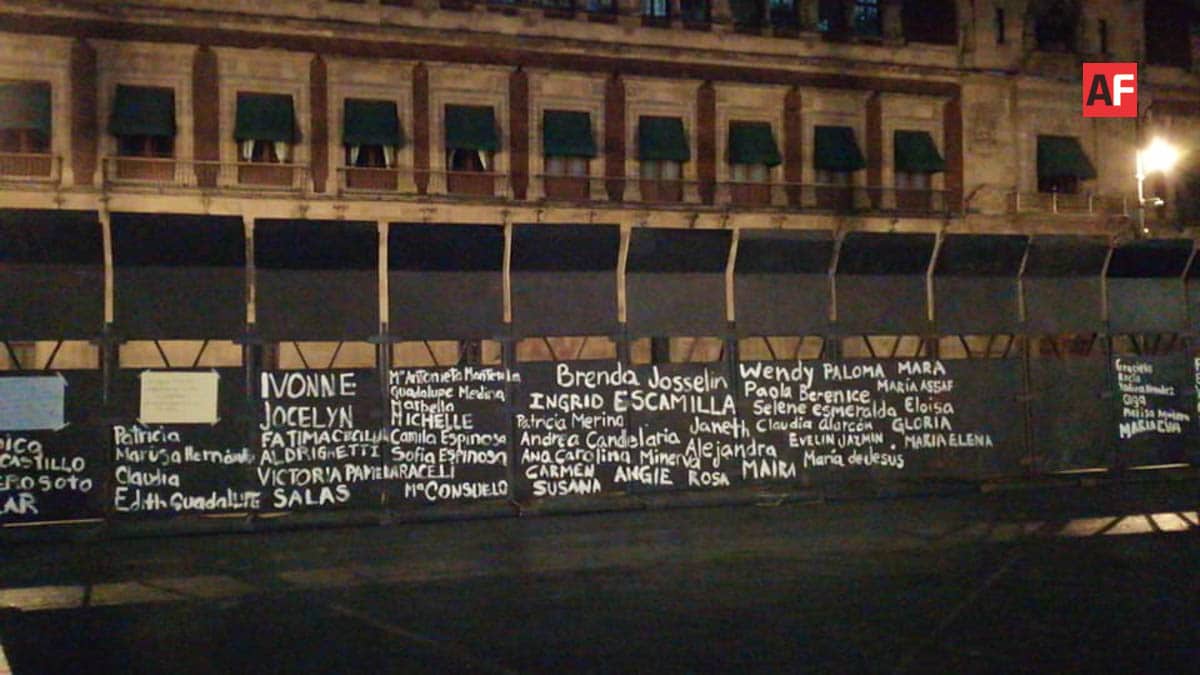 AF
DICO
CASTILLO
ERO SOTO
AR
Patricia
Maruga Hernández
Claudia
Edith Guadalupe
IVONNE
JOCELYN
FATIMA CECILIA
ALDRIGHETTI
VICTORIA PAMELA
SALAS
Mª Antonieta
Guadalupe Medina
Marbella
MICHELLE
Camila Espinosa
Sofía Espinosa
ARACELI
Mª CONSUELO
Brenda Josselin
INGRID ESCAMILLA
Patricia Merino
Andrea Candelaria
Ana Carolina Minerva
CARMEN ANGIE ROSA
SUSANA
Janeth
Alejandra
MAIRA
Wendy PALOMA MARA
Paola Berenice MARIA ASSAF
Selene esmeralda Eloisa
Claudia Alarcón GLORIA
EVELIN JAZMIN • MARIA ELENA
María de Jesus
Graciela
Rocío
Olga
MARIA ELVA